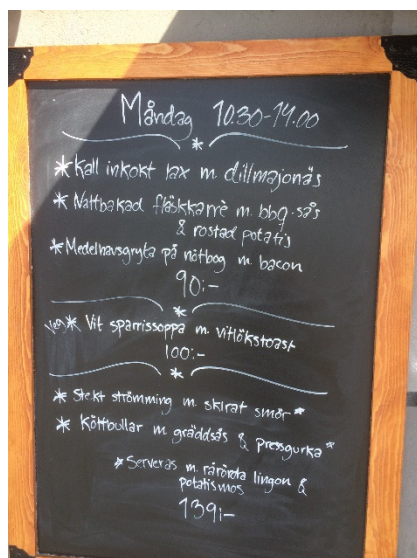 Måndag 10.30-14.00
*
* Kall inkokt lax m. dillmajonäs
* Nattbakad fläskkarré m. bbq-sås
& rostad potatis
* Medelhavsgryta på nötbog m. bacon
90:-
*
Veg * Vit sparrissoppa m. vitlökstoast
100:-
*
* Stekt strömming m. skirat smör *
* Köttbullar m. gräddsås & pressgurka *
* Serveras m. rårörda lingon &
potatismos
139:-